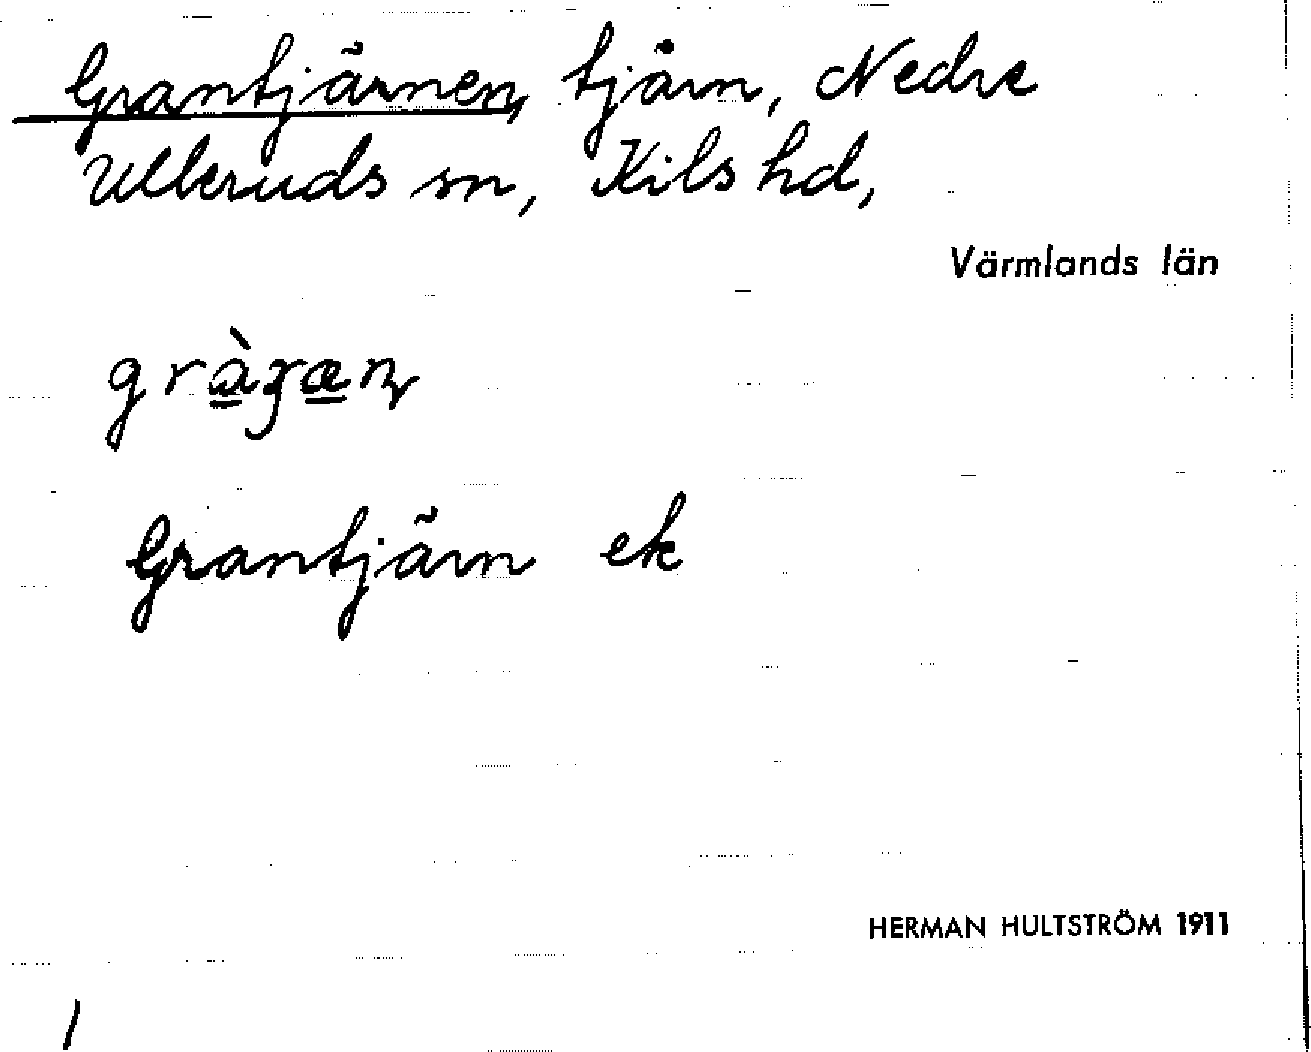 Grantjärnen, tjärn, Nedre
Ulleruds sn, Kils hd,
Värmlands län
Grantjärn ek
HERMAN HULTSTRÖM 1911
1